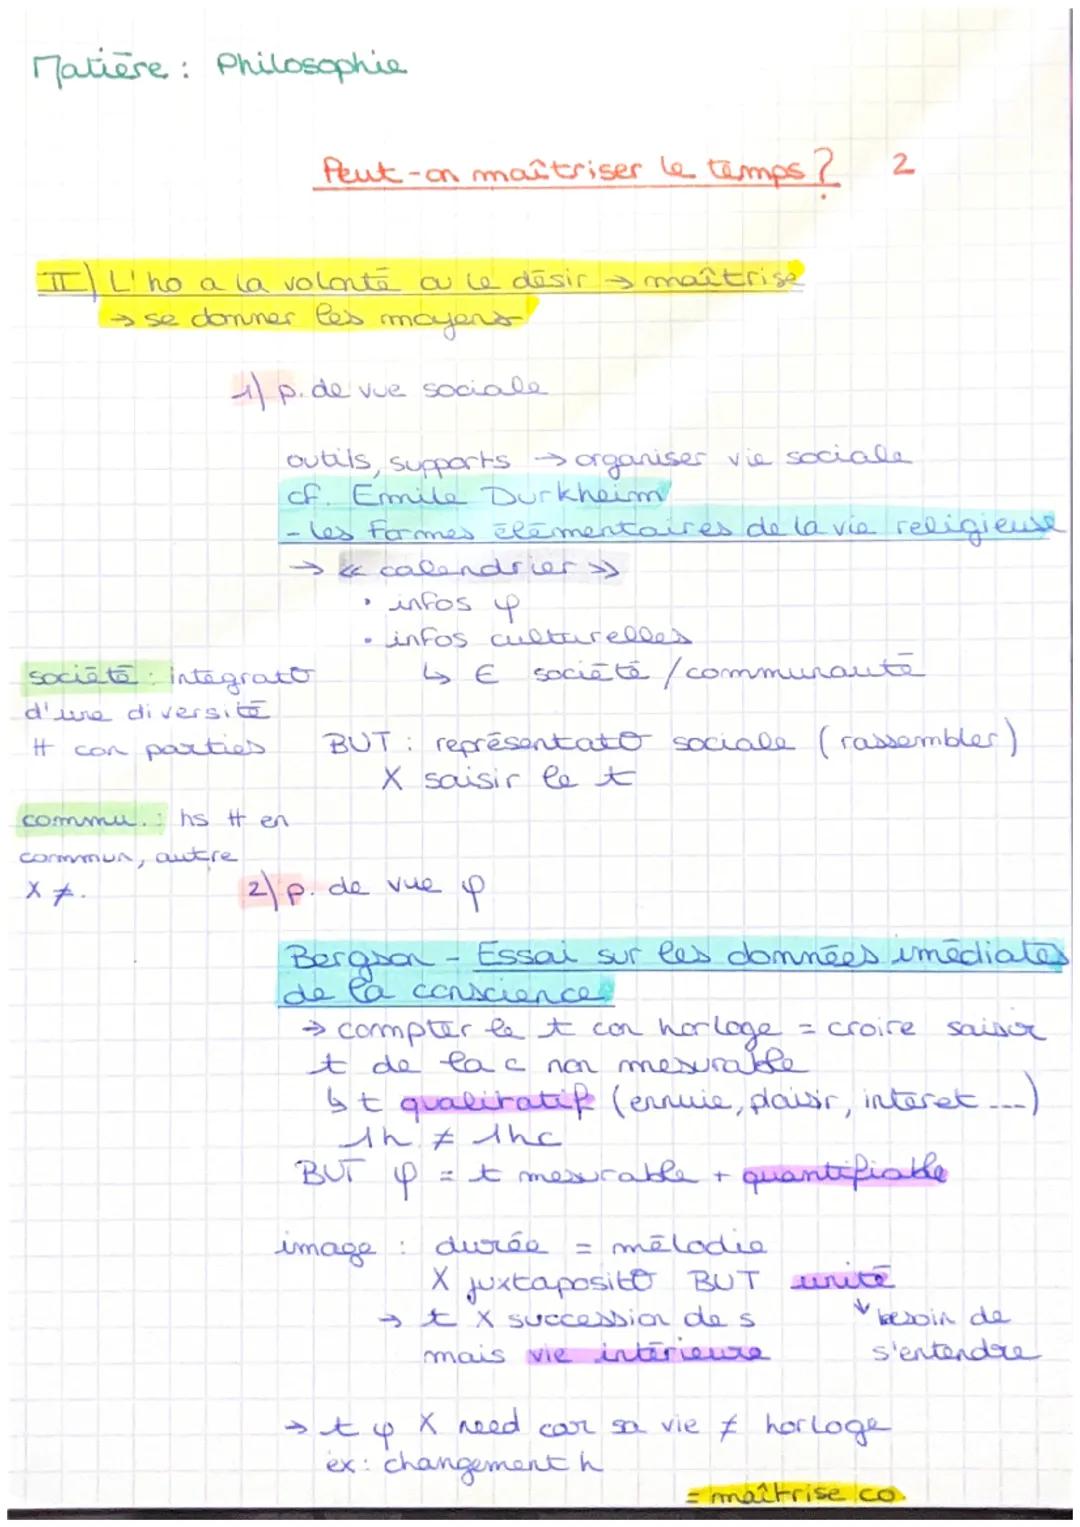 Matière : Philosophie
Peut-on maîtriser le temps ? 2
II) L'ho a la volonté ou le désir → maîtrise
→ se donner les moyens
1) p. de vue sociale
outils, supports → organiser vie sociale
cf. Emile Durkheim
- les formes élémentaires de la vie religieuse
→ « calendrier »
• infos φ
• infos culturelles
↳ € société / communauté
société : intégrat°
d'une diversité
# con parties
BUT : représentat° sociale (rassembler)
X saisir le t
commu. : hs # en
commun, autre
X ≠.
2) p. de vue φ
Bergson - Essai sur les données imédiates
de la conscience
→ compter le t con horloge = croire saisir
t de la c non mesurable
↳ t qualitatif (ennuie, plaisir, interet ...)
1h ≠ 1hc
BUT φ = t mesurable + quantifiable
image : durée = mélodie
X juxtaposit° BUT unité
→ t X succession de s
↓ besoin de
mais vie intérieure
s'entendre
→ t φ X need car sa vie ≠ horloge
ex : changement h
= maîtrise co.